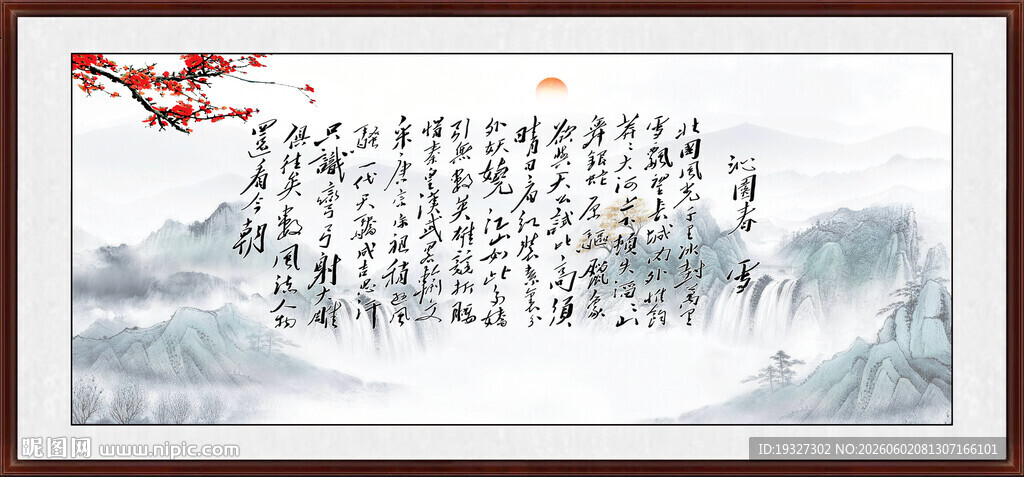 沁園春 雪
北國風光千里冰封萬里
雪飄望長城内外惟餘
莽〻大河上下頓失滔〻山
舞銀蛇原驅臘象
欲與天公試比高須
晴日看红装素裹分
外妖嬈 江山如此多嬌
引無數英雄競折腰
惜秦皇漢武略輸文
采唐宗宋祖稍遜風
騷一代天驕成吉思汗
只識彎弓射大雕
俱往矣數風流人物
還看今朝
昵图网 www.nipic.com
ID:19327302 NO:20260602081307166101